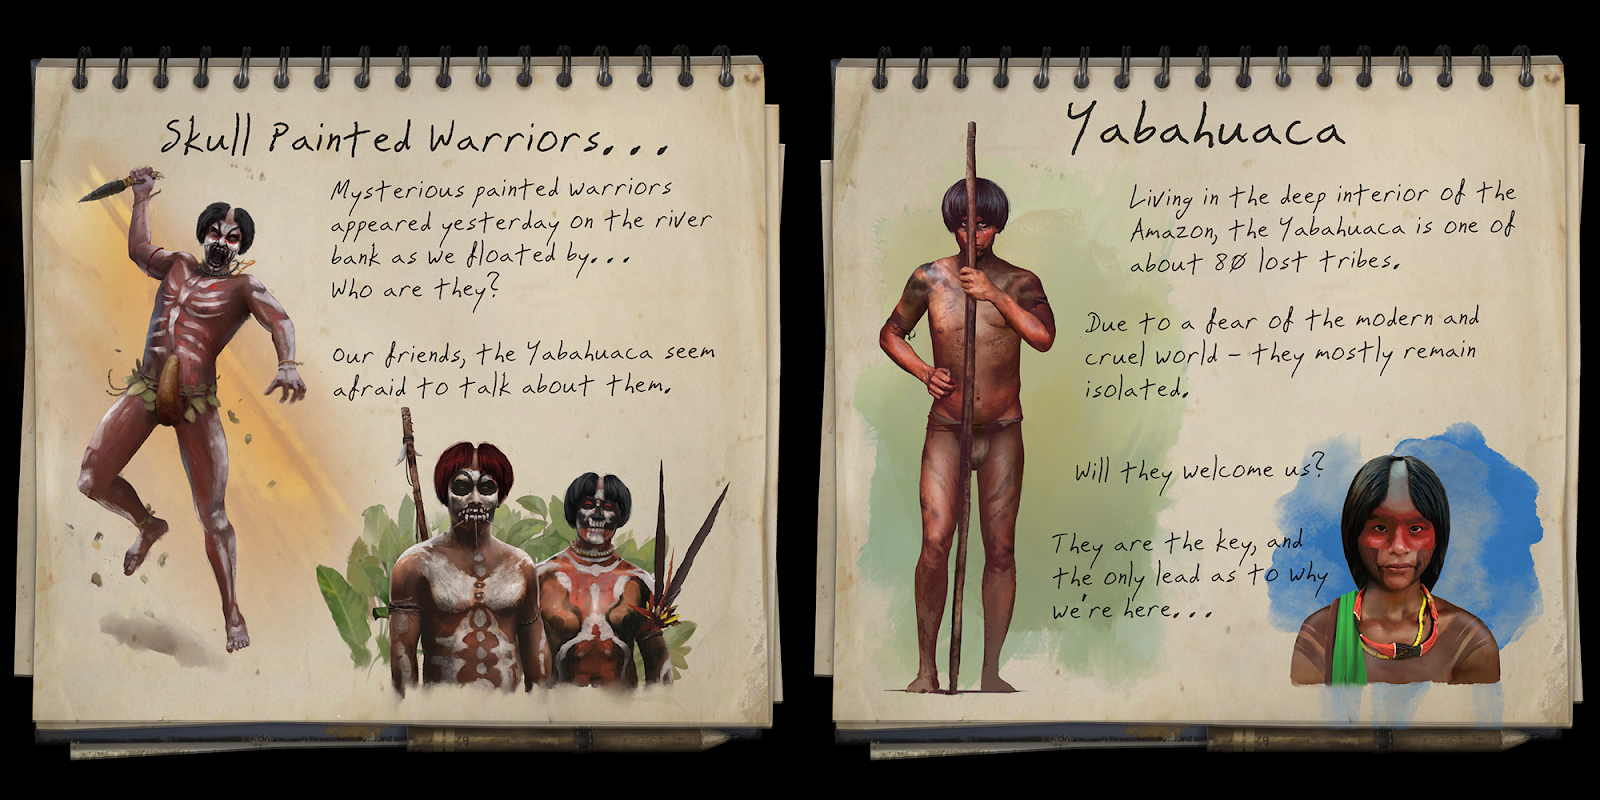 Skull Painted Warriors...
Mysterious painted warriors
appeared yesterday on the river
bank as we floated by...
Who are they?
Our friends, the Yabahuaca seem
afraid to talk about them.
Yabahuaca
Living in the deep interior of the
Amazon, the Yabahuaca is one of
about 80 lost tribes.
Due to a fear of the modern and
cruel world - they mostly remain
isolated.
Will they welcome us?
They are the key, and
the only lead as to why
we're here...